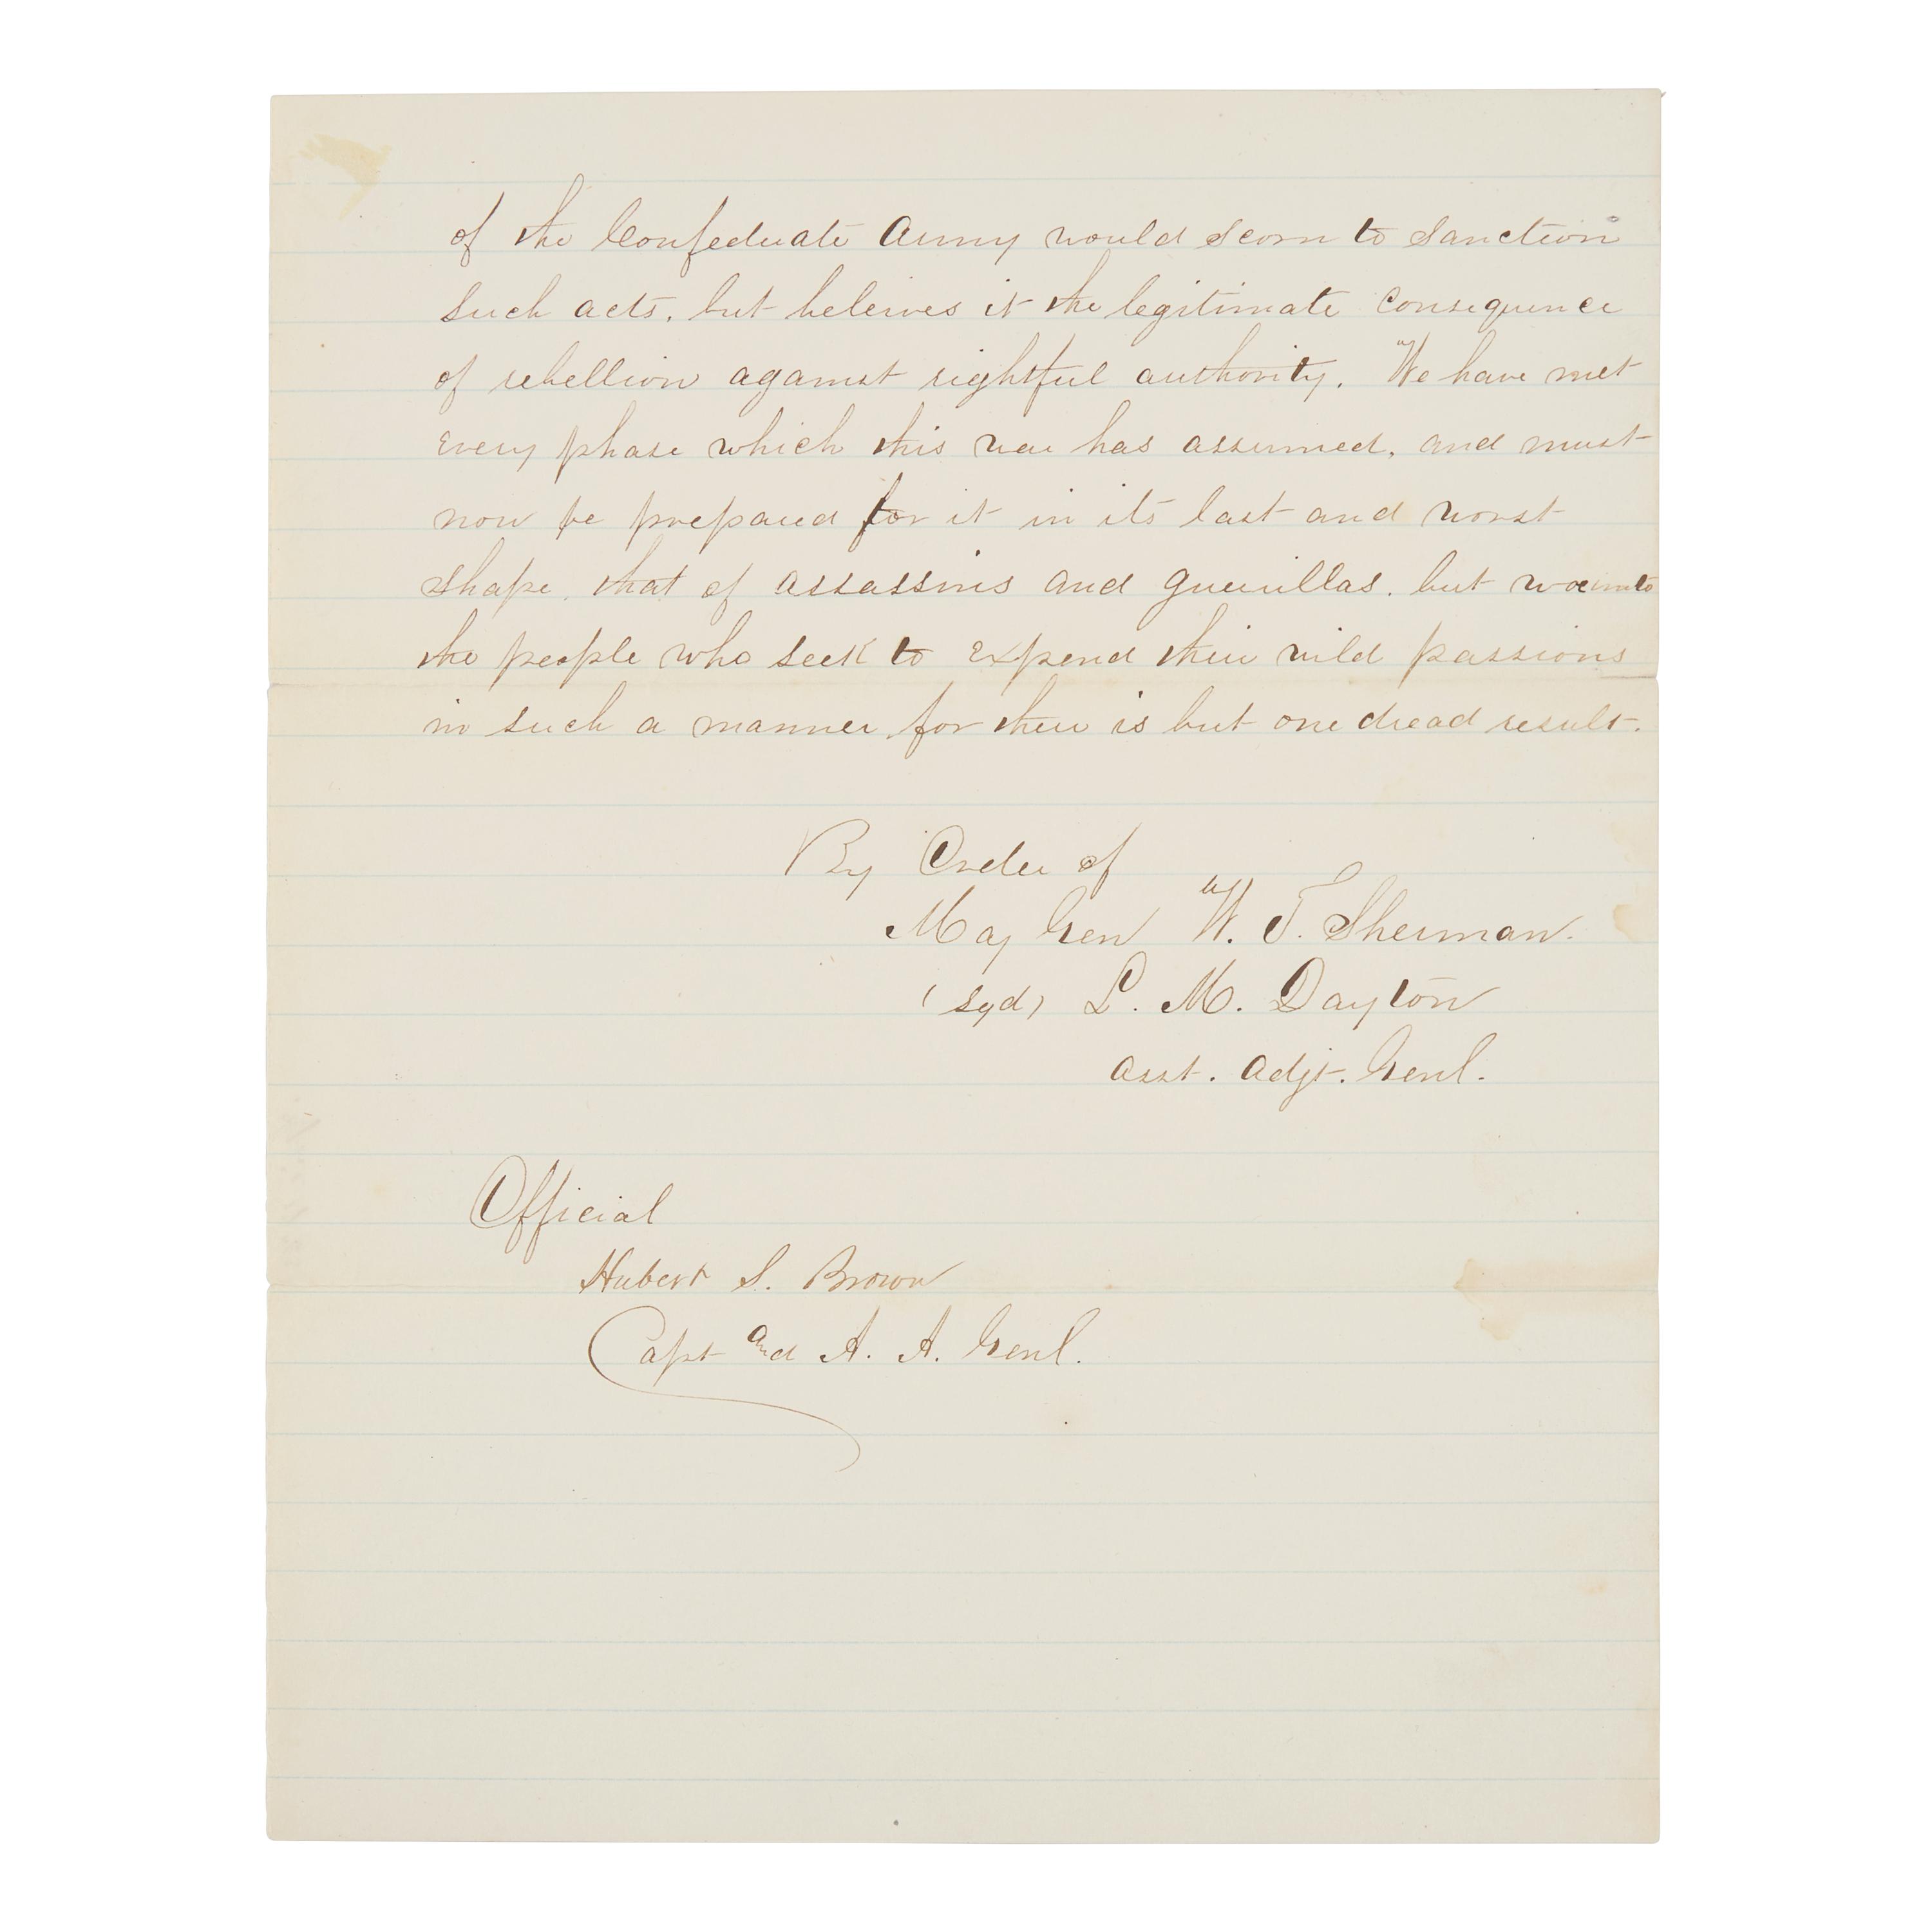 of the Confederate Army would scorn to sanction
such acts, but beleives it the legitimate consequence
of rebellion against rightful authority. We have met
every phase which this war has assumed, and must
now be prepared for it in its last and worst
shape, that of assassins and guerrillas. but woe unto
the people who seek to expend their wild passions
in such a manner, for there is but one dread result.
By Order of
Maj Gen W. T. Sherman.
(sgd) L. M. Dayton
Asst. Adjt. Genl.
Official
Hubert S. Brown
Capt and A. A. Genl.